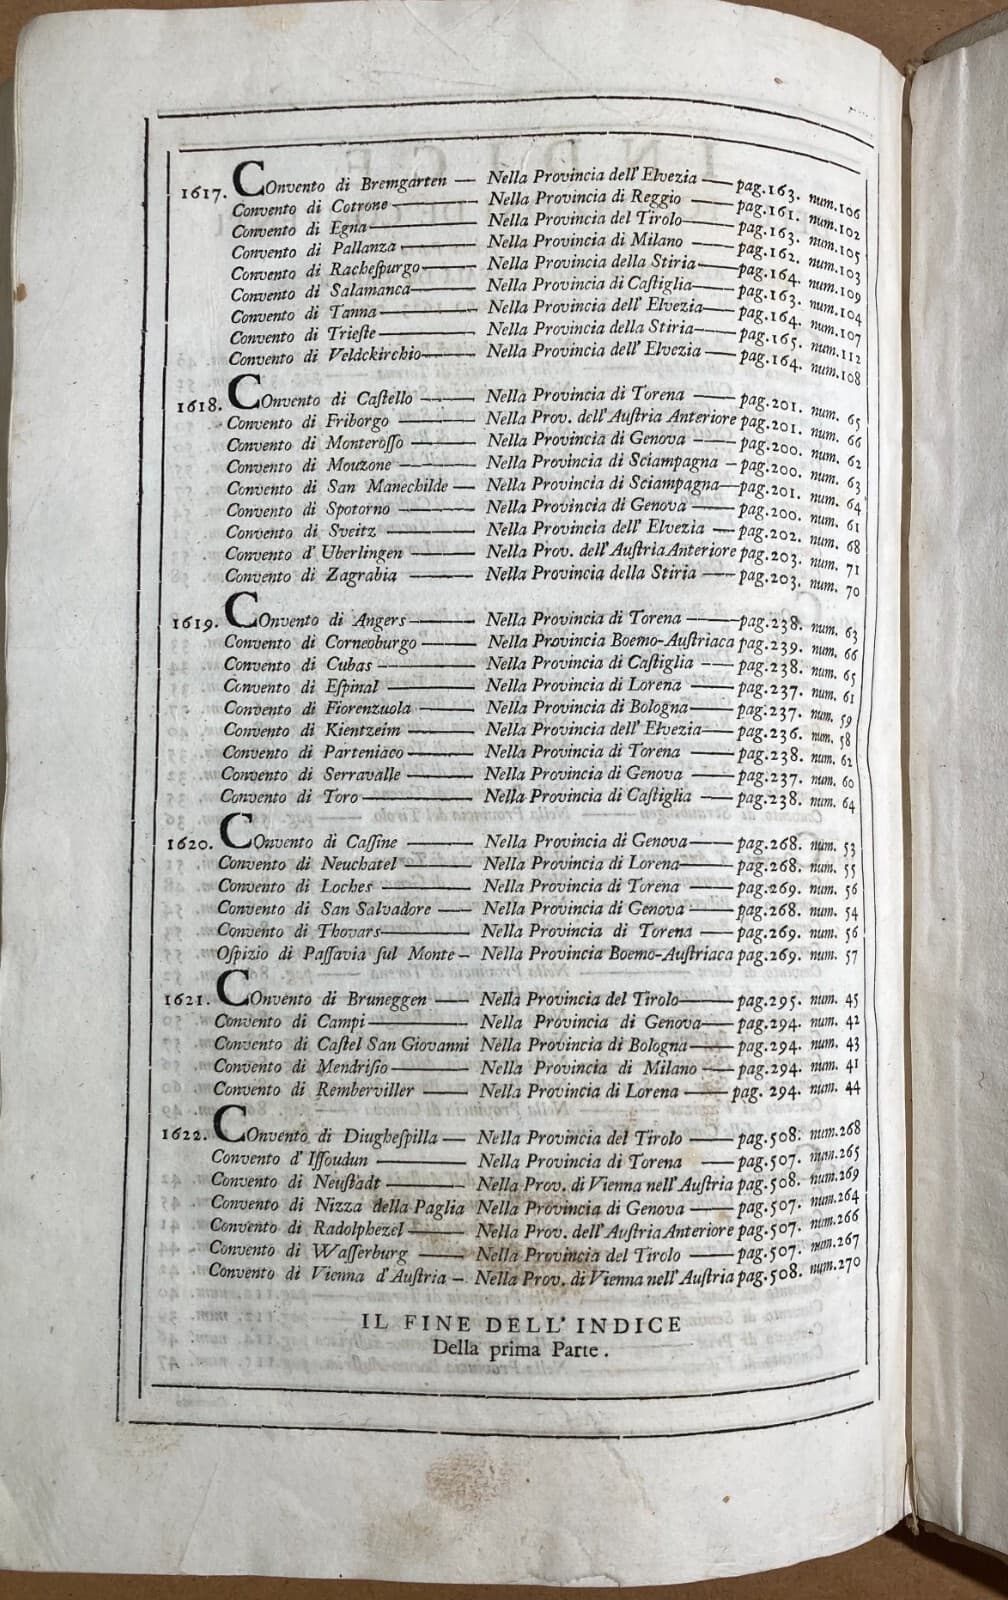 1617. COnvento di Bremgarten — Nella Provincia dell' Elvezia — pag.163. num.106
Convento di Cotrone — Nella Provincia di Reggio — pag.161. num.102
Convento di Egna — Nella Provincia del Tirolo — pag.163. num.105
Convento di Pallanza — Nella Provincia di Milano — pag.162. num.103
Convento di Racheſpurgo — Nella Provincia della Stiria — pag.164. num.109
Convento di Salamanca — Nella Provincia di Caſtiglia — pag.163. num.104
Convento di Tanna — Nella Provincia dell' Elvezia — pag.164. num.107
Convento di Trieſte — Nella Provincia della Stiria — pag.165. num.112
Convento di Veldckirchio — Nella Provincia dell' Elvezia — pag.164. num.108
1618. COnvento di Caſtello — Nella Provincia di Torena — pag.201. num. 65
Convento di Friborgo — Nella Prov. dell' Auſtria Anteriore pag.201. num. 66
Convento di Monteroſſo — Nella Provincia di Genova — pag.200. num. 62
Convento di Mouzone — Nella Provincia di Sciampagna — pag.200. num. 63
Convento di San Manechilde — Nella Provincia di Sciampagna — pag.201. num. 64
Convento di Spotorno — Nella Provincia di Genova — pag.200. num. 61
Convento di Sveitz — Nella Provincia dell' Elvezia — pag.202. num. 68
Convento d' Uberlingen — Nella Prov. dell' Auſtria Anteriore pag.203. num. 71
Convento di Zagrabia — Nella Provincia della Stiria — pag.203. num. 70
1619. COnvento di Angers — Nella Provincia di Torena — pag.238. num. 63
Convento di Corneoburgo — Nella Provincia Boemo-Auſtriaca pag.239. num. 66
Convento di Cubas — Nella Provincia di Caſtiglia — pag.238. num. 65
Convento di Eſpinal — Nella Provincia di Lorena — pag.237. num. 61
Convento di Fiorenzuola — Nella Provincia di Bologna — pag.237. num. 59
Convento di Kientzeim — Nella Provincia dell' Elvezia — pag.236. num. 58
Convento di Parteniaco — Nella Provincia di Torena — pag.238. num. 62
Convento di Serravalle — Nella Provincia di Genova — pag.237. num. 60
Convento di Toro — Nella Provincia di Caſtiglia — pag.238. num. 64
1620. COnvento di Caſſine — Nella Provincia di Genova — pag.268. num. 53
Convento di Neuchatel — Nella Provincia di Lorena — pag.268. num. 55
Convento di Loches — Nella Provincia di Torena — pag.269. num. 56
Convento di San Salvadore — Nella Provincia di Genova — pag.268. num. 54
Convento di Thovars — Nella Provincia di Torena — pag.269. num. 56
Oſpizio di Paſſavia ſul Monte — Nella Provincia Boemo-Auſtriaca pag.269. num. 57
1621. COnvento di Bruneggen — Nella Provincia del Tirolo — pag.295. num. 45
Convento di Campi — Nella Provincia di Genova — pag.294. num. 42
Convento di Caſtel San Giovanni Nella Provincia di Bologna — pag.294. num. 43
Convento di Mendriſio — Nella Provincia di Milano — pag.294. num. 41
Convento di Remberviller — Nella Provincia di Lorena — pag. 294. num. 44
1622. COnvento di Diugheſpilla — Nella Provincia del Tirolo — pag.508. num.268
Convento d' Iſſoudun — Nella Provincia di Torena — pag.507. num.265
Convento di Neuſtadt — Nella Prov. di Vienna nell' Auſtria pag.508. num.269
Convento di Nizza della Paglia Nella Provincia di Genova — pag.507. num.264
Convento di Radolphezel — Nella Prov. dell' Auſtria Anteriore pag.507. num.266
Convento di Waſſerburg — Nella Provincia del Tirolo — pag.507. num.267
Convento di Vienna d' Auſtria — Nella Prov. di Vienna nell' Auſtria pag.508. num.270
IL FINE DELL' INDICE
Della prima Parte.